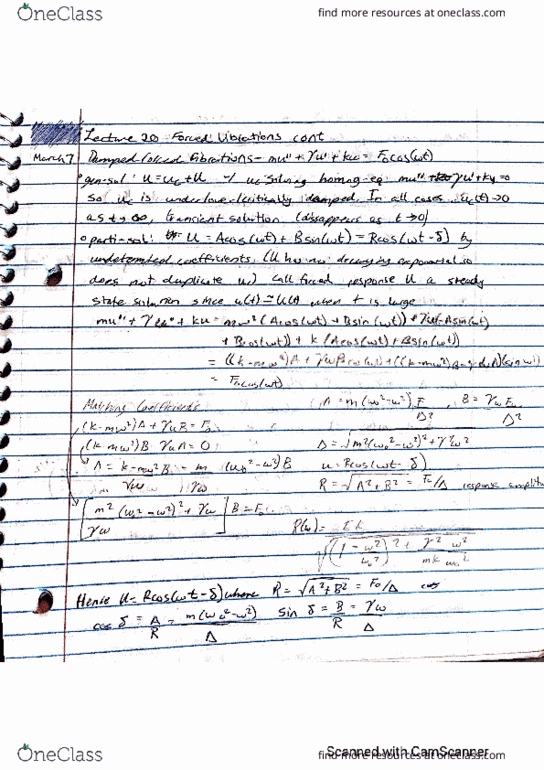 OneClass
find more resources at oneclass.com
Lecture 20 Forced Vibrations cont
March 7 Damped Forced Vibrations - mu'' + γu' + ku = F₀cos(ωt)
• gen sol: u = uc + U w/ uc solving homog eq: mu'' + γu' + ku = 0
so uc is under/over/critically damped. In all cases uc(t) → 0
as t → ∞, transient solution (disappear as t → 0)
• parti-sol: U = Acos(ωt) + Bsin(ωt) = Rcos(ωt - δ) by
undetermined coefficients. (U has no decaying exponential so
does not duplicate uc) Call forced response U a steady
state solution since u(t) ≈ U(t) when t is large
mu'' + γu' + ku = mω²(Acos(ωt) + Bsin(ωt)) + γω(-Asin(ωt)
+ Bcos(ωt)) + k(Acos(ωt) + Bsin(ωt))
= ((k-mω²)A + γωB)cos(ωt) + ((k-mω²)B - γωA)(sin ωt)
= F₀cos(ωt)
Matching Coefficients
(k-mω²)A + γωB = F₀
(k-mω²)B - γωA = 0
A = k-mω² B = m (ω₀²-ω²)B
γω γω
[m²(ω₀²-ω²)² + γω] B = F₀
γω
A = m(ω₀²-ω²)F₀ , B = γωF₀
Δ² Δ²
Δ = √m²(ω₀²-ω²)² + γ²ω²
u = Rcos(ωt - δ)
R = √A² + B² = F₀/Δ response amplitu
R(ω) =
√(1 - ω²/ω₀²)² + γ²/mk ω²/ω₀²
Hence U = Rcos(ωt - δ) where R = √A² + B² = F₀/Δ cos
cos δ = A/R = m(ω₀²-ω²)/Δ sin δ = B/R = γω/Δ
Scanned with CamScanner
OneClass
find more resources at oneclass.com